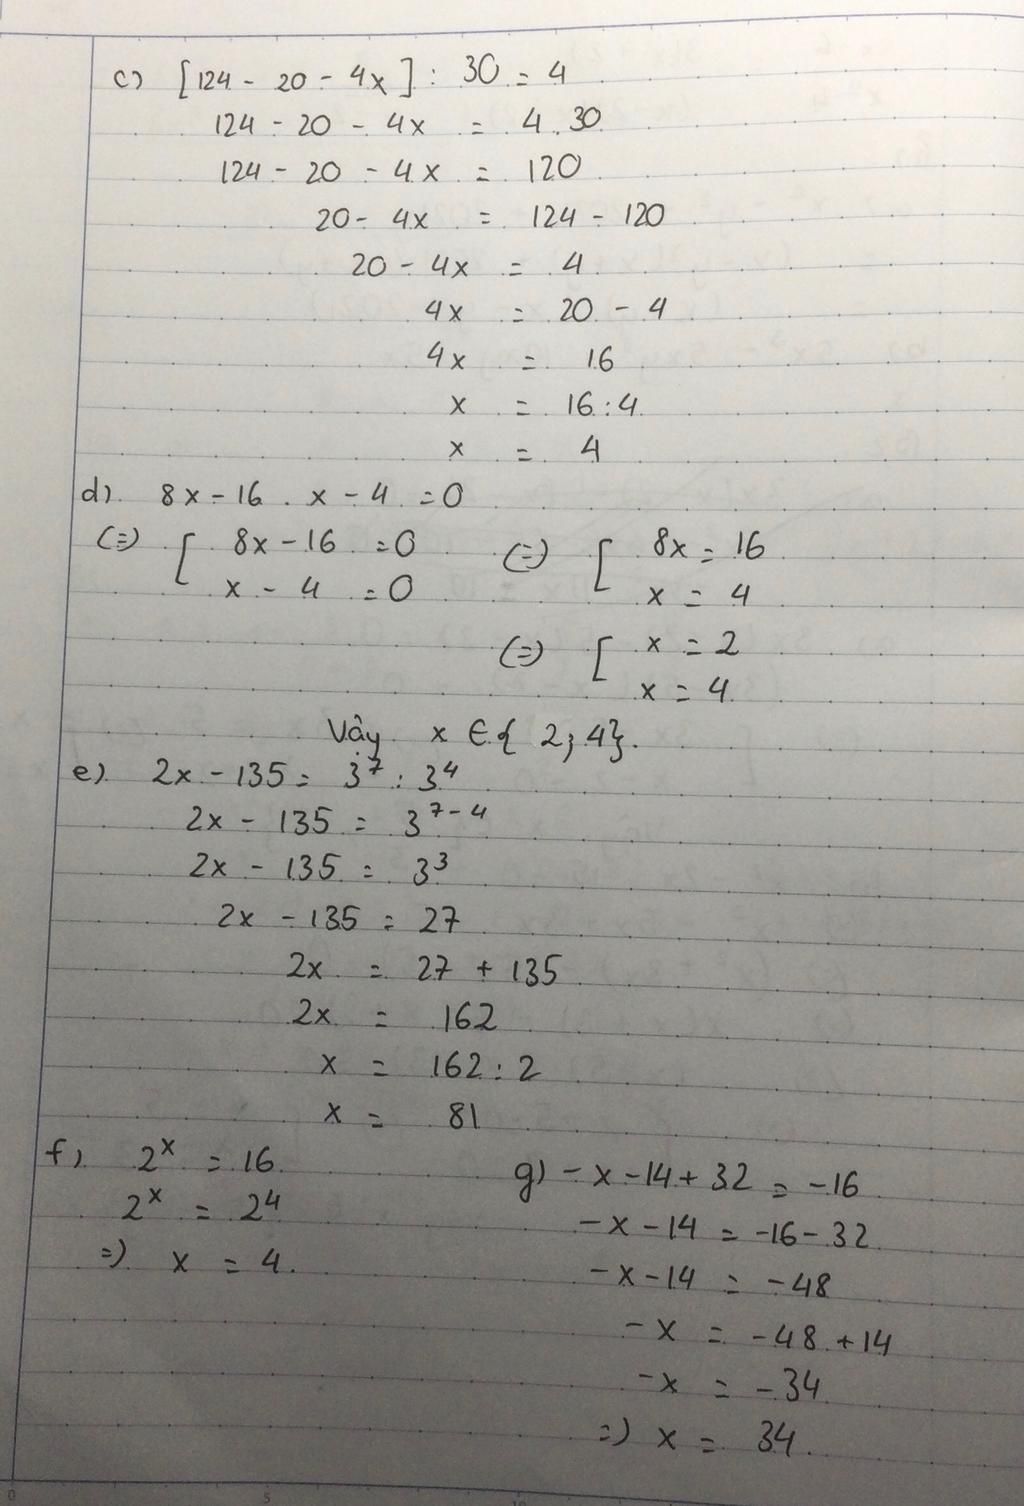 c) [124 - 20 - 4x] : 30 = 4
124 - 20 - 4x = 4.30
124 - 20 - 4x = 120
20 - 4x = 124 - 120
20 - 4x = 4
4x = 20 - 4
4x = 16
x = 16:4
x = 4
d) 8x - 16 . x - 4 = 0
(=) [ 8x - 16 = 0 (=) [ 8x = 16
x - 4 = 0 x = 4
(=) [ x = 2
x = 4
Vậy x ∈ { 2; 4}.
e) 2x - 135 = 3⁷ : 3⁴
2x - 135 = 3⁷⁻⁴
2x - 135 = 3³
2x - 135 = 27
2x = 27 + 135
2x = 162
x = 162 : 2
x = 81
f) 2ˣ = 16
2ˣ = 2⁴
=) x = 4.
g) - x - 14 + 32 = -16
- x - 14 = -16 - 32
- x - 14 = - 48
- x = - 48 + 14
- x = - 34
=) x = 34.
0 5 10